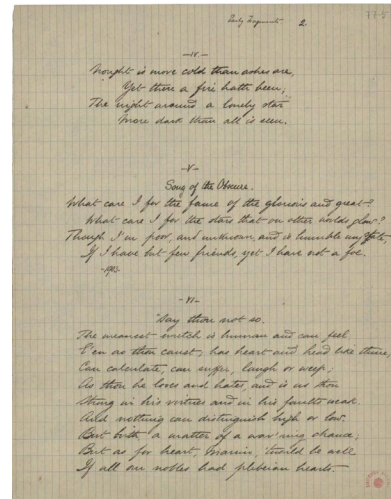 Early Fragments 2.
77-5
—IV—
Nought is more cold than ashes are,
Yet there a fire hath been;
The night around a lonely star
More dark than all is seen.
—V—
Song of the Obscure.
What care I for the fame of the glorious and great?
What care I for the stars that on other worlds glow?
Though I'm poor, and unknown, and is humble my state,
If I have but few friends, yet I have not a foe.
—VI—
"Say thou not so.
The meanest wretch is human and can feel
E'en as thou canst, has heart and head like thine,
Can calculate, can suffer, laugh or weep;
As thou he loves and hates, and is as thou
Strong in his virtues and in his faults weak.
And nothing can distinguish high or low.
But birth – a matter of a wav'ring chance;
But as for heart, Marvin, 'twould be well
If all our nobles had plebeian hearts.